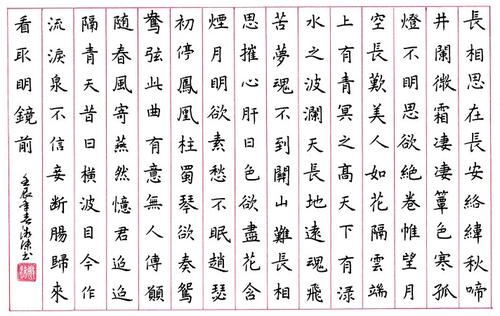 長相思在長安絡緯秋啼
井闌微霜凄凄簟色寒孤
燈不明思欲絕卷帷望月
空長歎美人如花隔雲端
上有青冥之高天下有淥
水之波瀾天長地遠魂飛
苦夢魂不到關山難長相
思摧心肝日色欲盡花含
煙月明欲素愁不眠趙瑟
初停鳳凰柱蜀琴欲奏鴛
鴦弦此曲有意無人傳願
隨春風寄燕然憶君迢迢
隔青天昔日橫波目今作
流淚泉不信妾斷腸歸來
看取明鏡前
壬辰年春